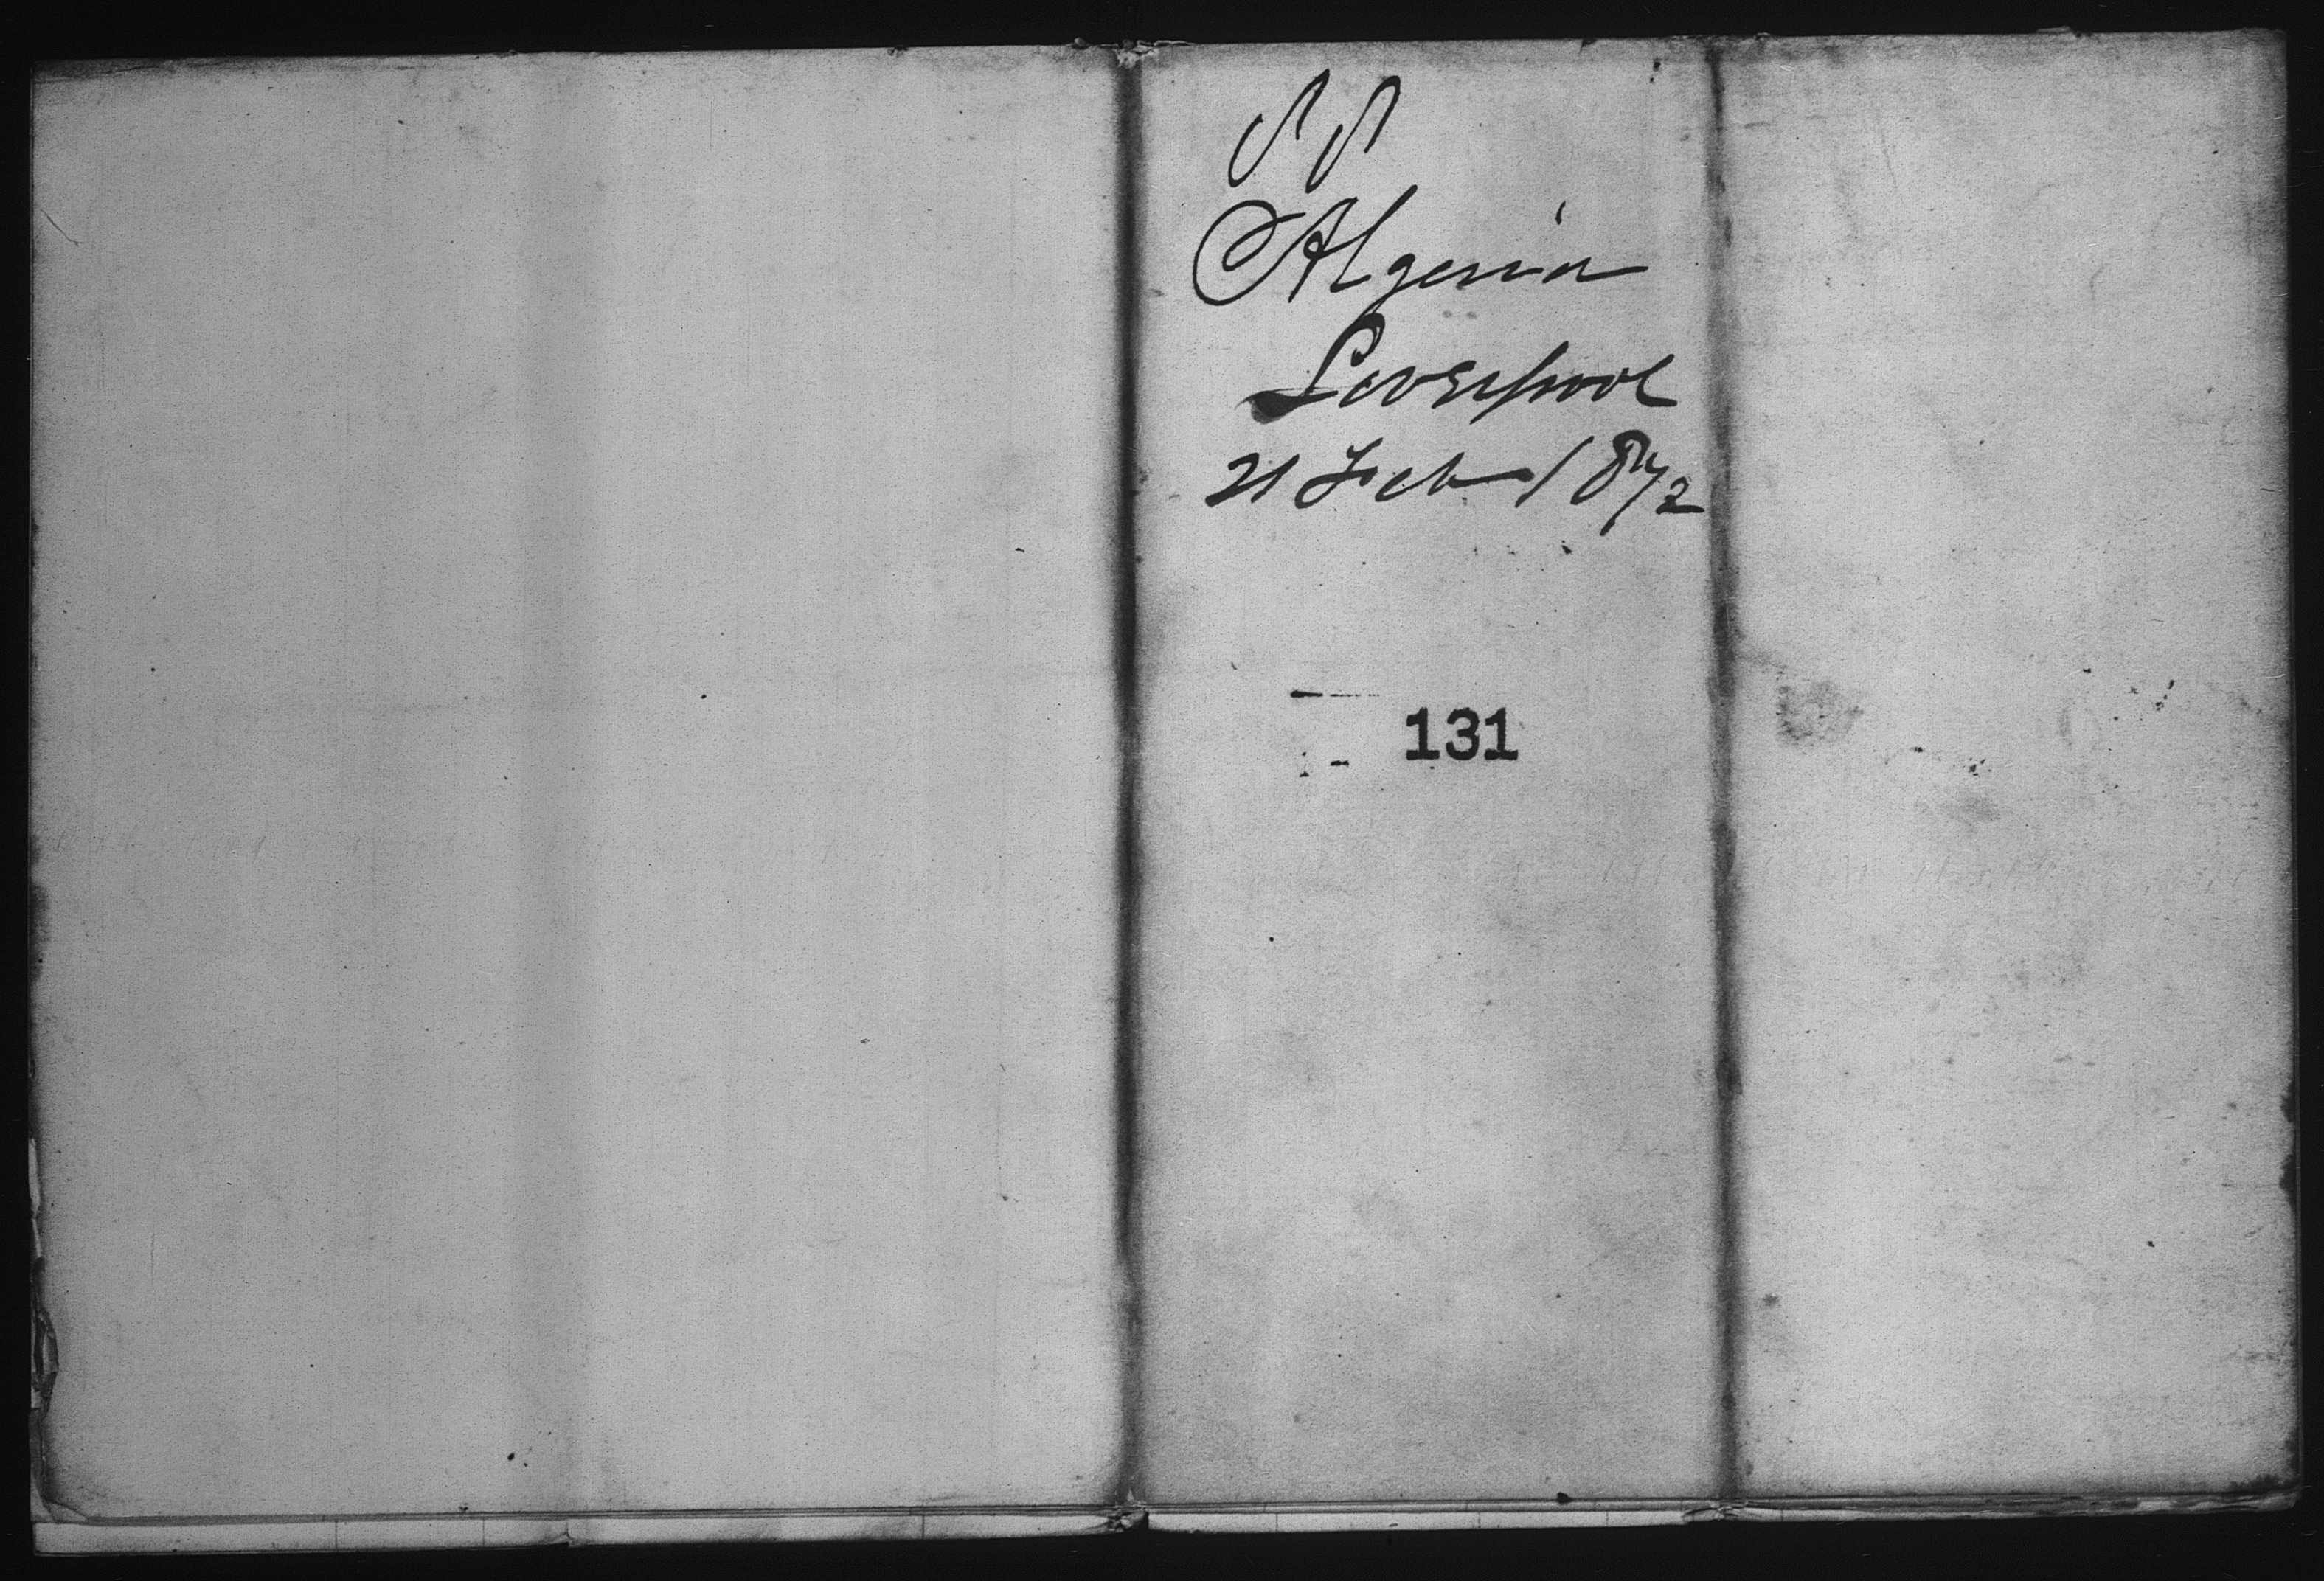 SS
Algeria
Liverpool
21 Feb 1872
131